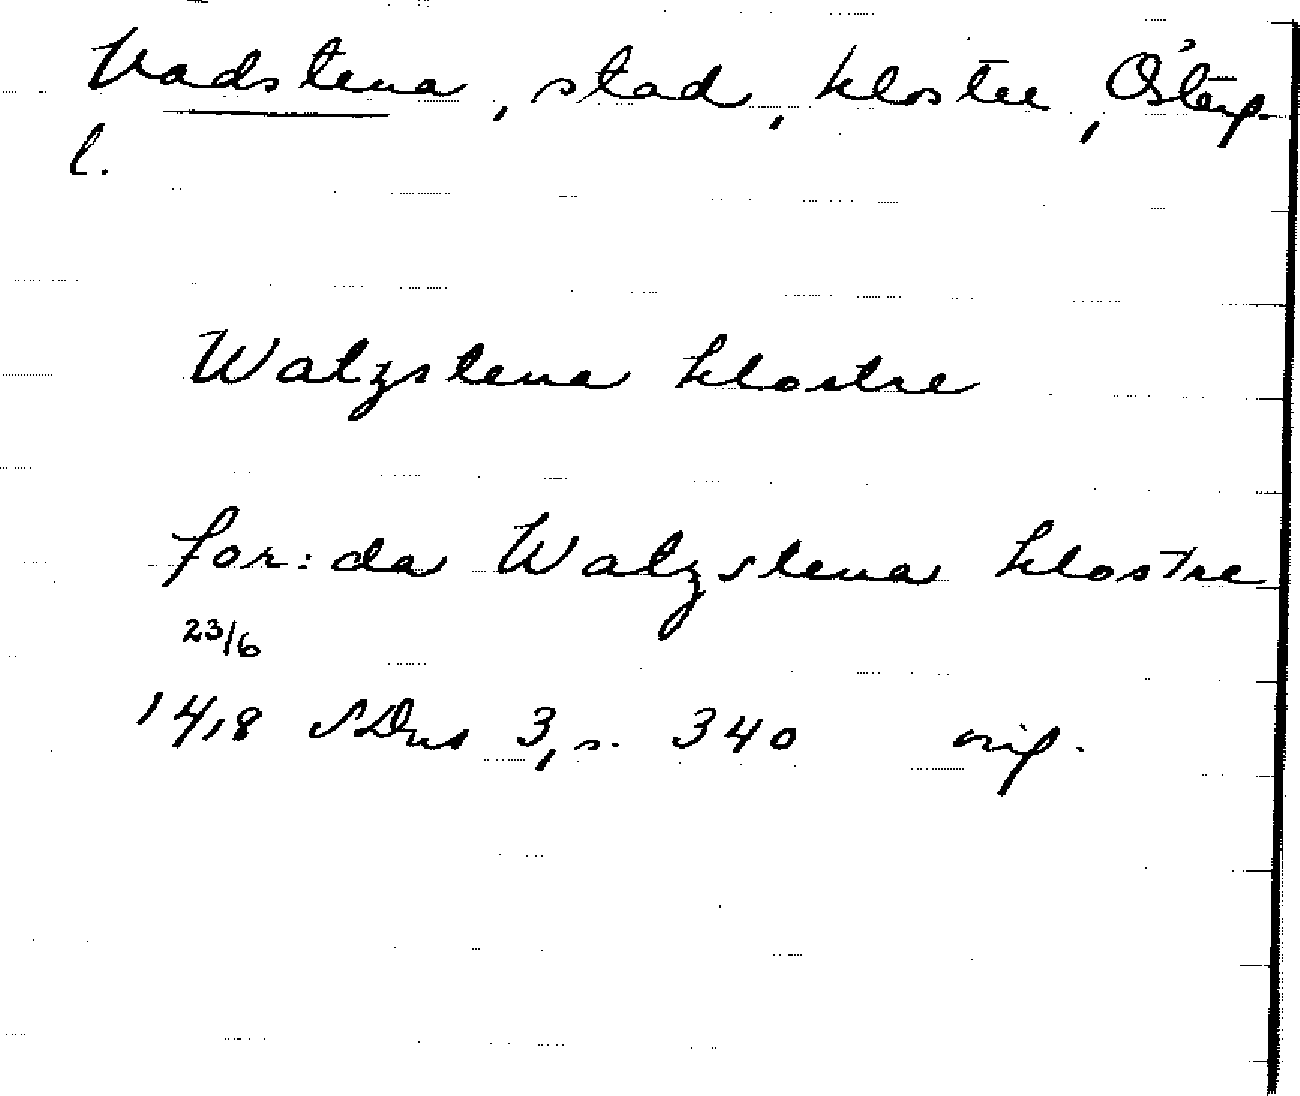 Vadstena, stad, kloster, Östg.
l.
Watzstena klostre
for:da Watzstena klostre
23/6
1418 SDns 3, s. 340 orig.